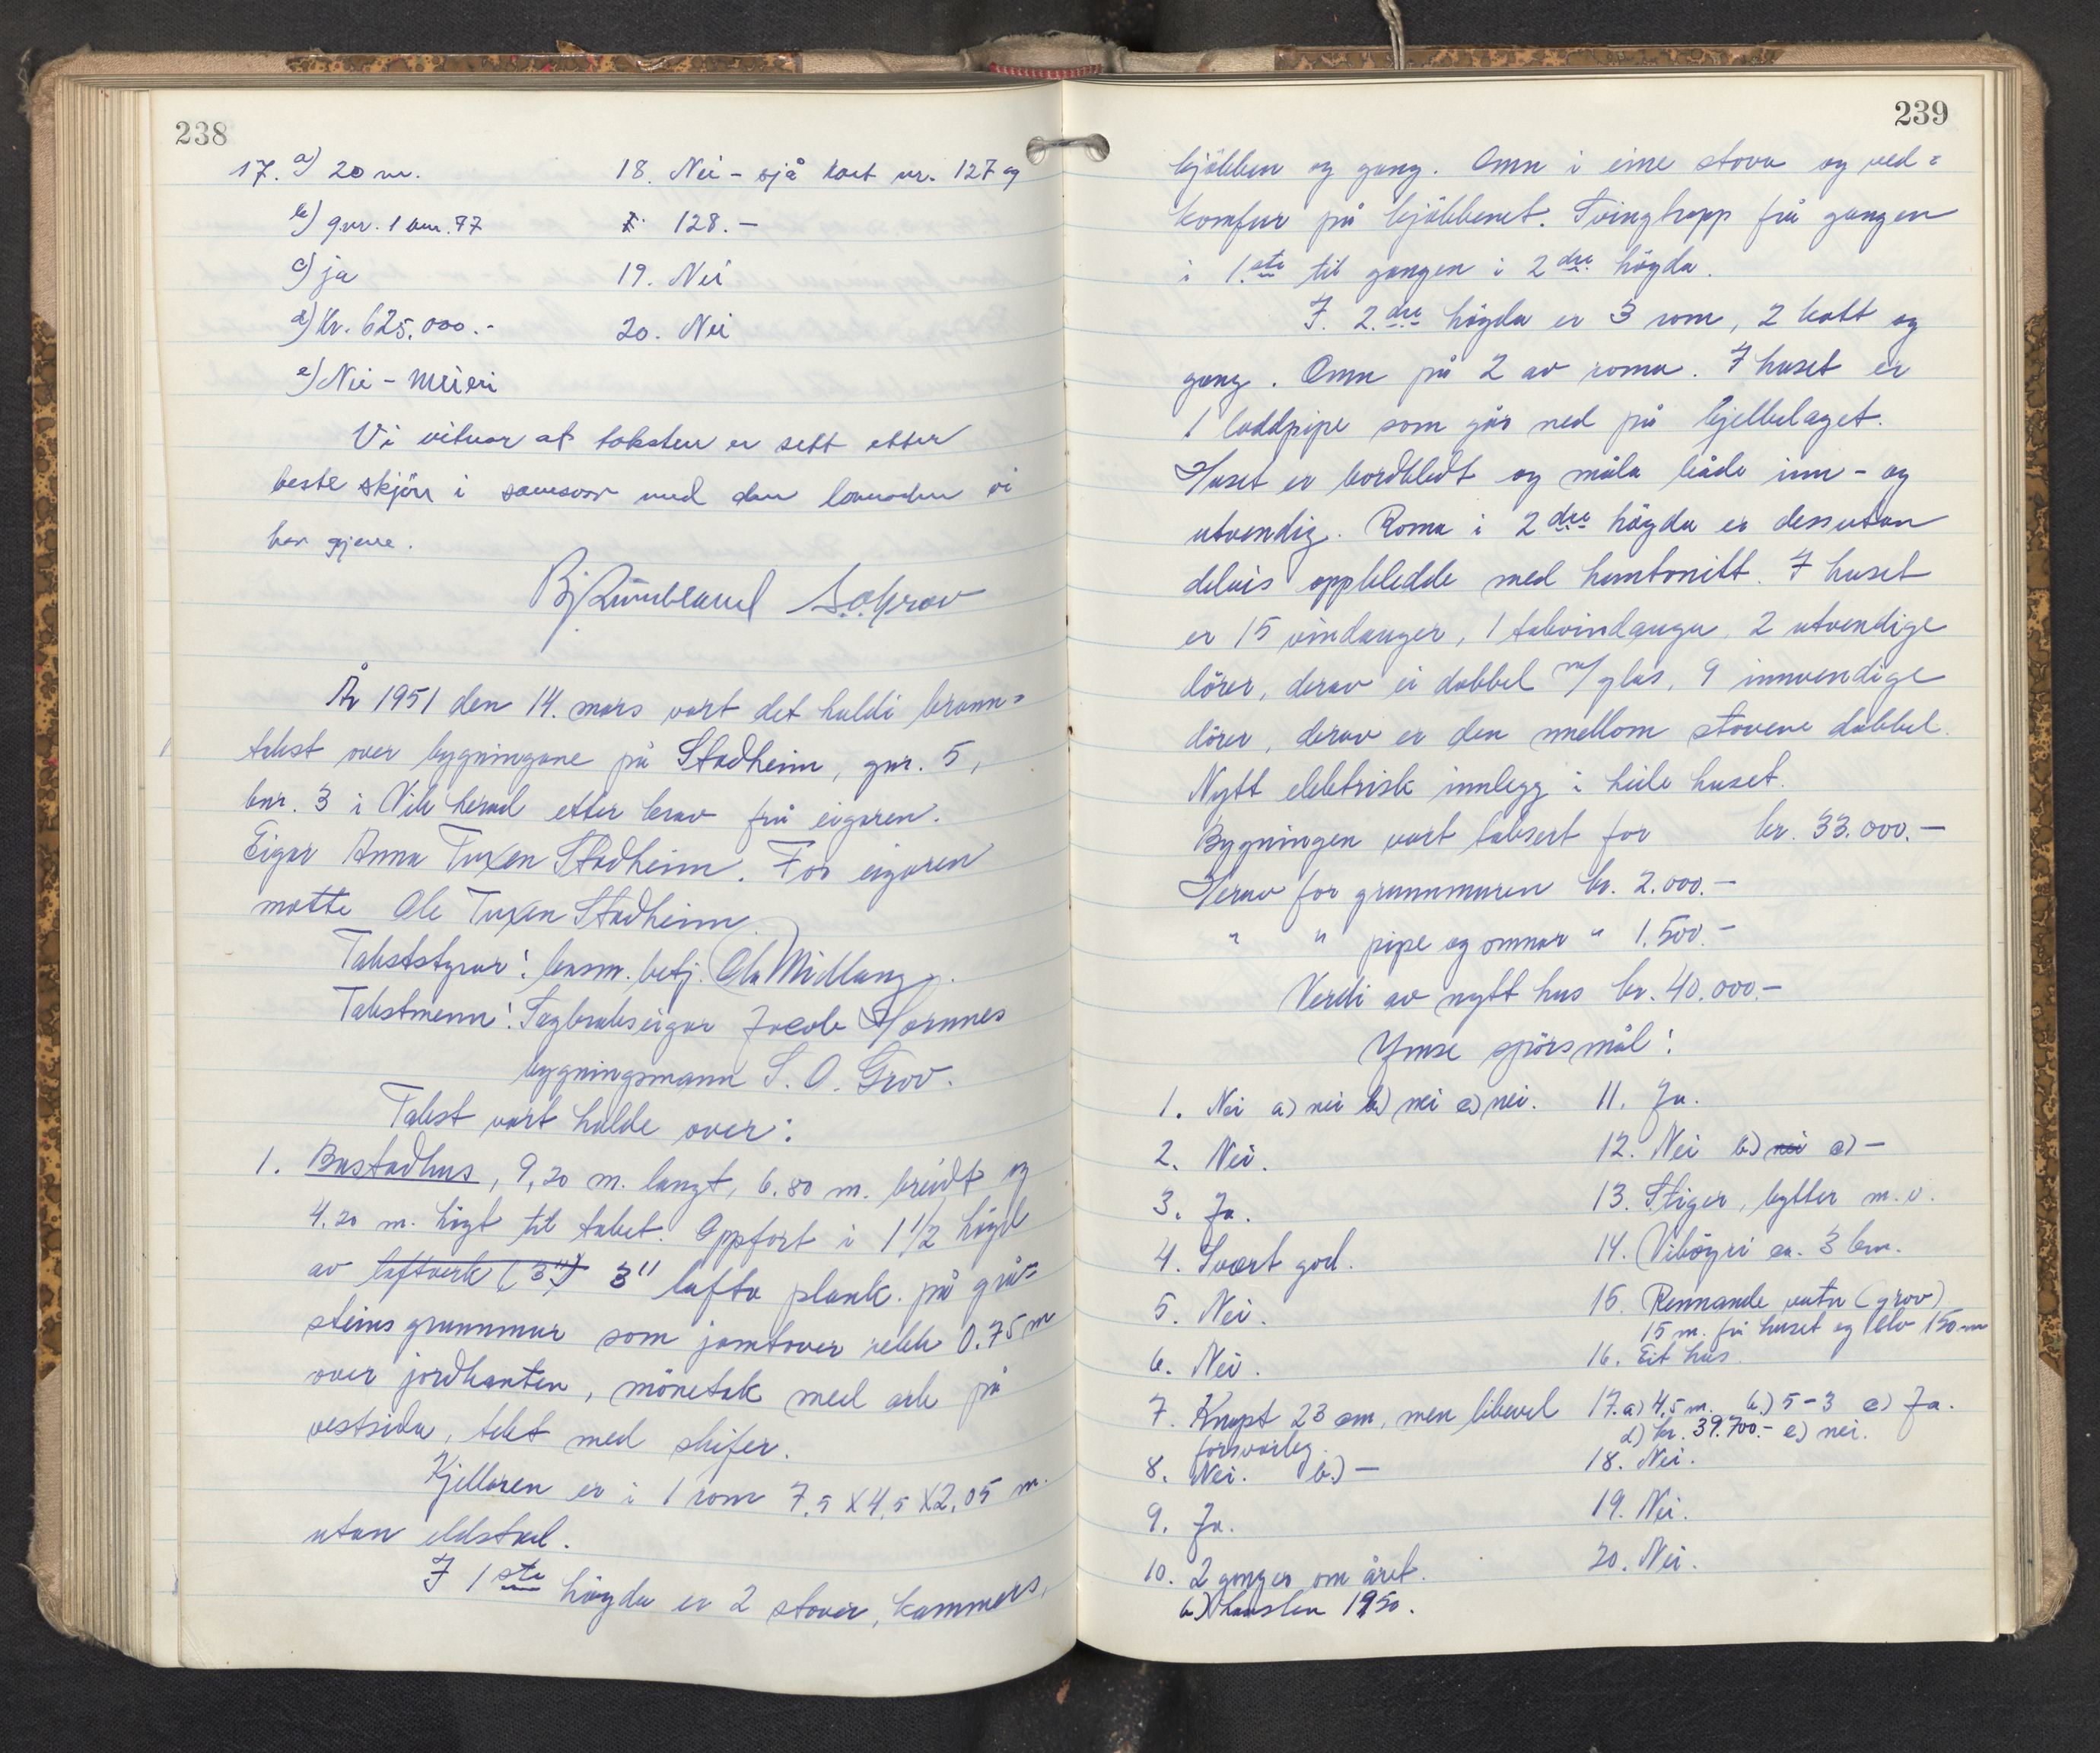 238
17. a) 20 m.
b) gnr. 1 bnr. 77
c) ja
d) kr. 625.000.-
e) Nei - meieri
18. Nei - sjå kort nr. 127 og
128. -
19. Nei
20. Nei
Vi vitnar at taksten er sett etter
beste skjön i samsvar med den lovnaden vi
har gjeve.
S.O. Grov
År 1951 den 14. mars vart det haldi brann=
takst over bygningane på Stadheim, gnr. 5,
bnr. 3 i Vik herad etter krav frå eigaren.
Eigar Anna Tuxen Stadheim. For eigaren
møtte Ole Tuxen Stadheim.
Takststyrar: lensm. betj. Ola Midlang.
Takstmenn: Sagbrukseigar Jacob Hornnes
bygningsmann S. O. Grov.
Takst vart halde over:
1. Bustadhus, 9,20 m. langt, 6.80 m. breidt og
4.20 m. högt til taket. Oppfört i 1 1/2 högd
av laftverk (3") 3" lafta plank. på grå=
steins grunnmur som jamtover rekk 0.75 m
over jordkanten, mönetak med ark på
vestsida, tekt med skifer.
Kjellaren er i 1 rom 7.5 X 4.5 X 2.05 m.
utan eldstad.
I 1ste högda er 2 stover, kammers,
239
kjökken og gang. Omn i eine stova og ved=
komfur på kjökkenet. Svingtrapp frå gangen
i 1.ste til gangen i 2dre högda.
I. 2.dre högda er 3 rom, 2 kott og
gang. Omn på 2 av roma. I huset er
1 loddpipe som går ned på kjellulaget.
Huset er bordkledt og måla både inn- og
utvendig. Roma i 2dre högda er dessutan
delvis oppkledde med huntonitt. I huset
er 15 vindauger, 1 takvindauga, 2 utvendige
dörer, derav ei dobbel m/glas, 9 innvendige
dörer, derav er den mellom stovene dobbel.
Nytt elektrisk innlegg i heile huset.
Bygningen vart taksert for kr. 33.000.-
Herav for grunnmuren kr. 2.000.-
" " pipe og omnar " 1.500.-
Verdi av nytt hus kr. 40.000.-
Ymse spörsmål:
1. Nei a) nei b) nei c) nei.
2. Nei.
3. Ja.
4. Svært god.
5. Nei.
6. Nei.
7. Knapt 23 cm, men likevel
forsvarleg.
8. Nei. b.) -
9. Ja.
10. 2 ganger om året.
b) hausten 1950.
11. Ja.
12. Nei b) nei c) -
13. Stiger, bytter m. v.
14. Viköyri ca. 3 km.
15. Rennande vatn (grov)
15 m. frå huset og elv 150 m
16. Eit hus.
17. a) 4,5 m. b.) 5-3 c) Ja.
d) kr. 39.700.- e) nei.
18. Nei.
19. Nei.
20. Nei.